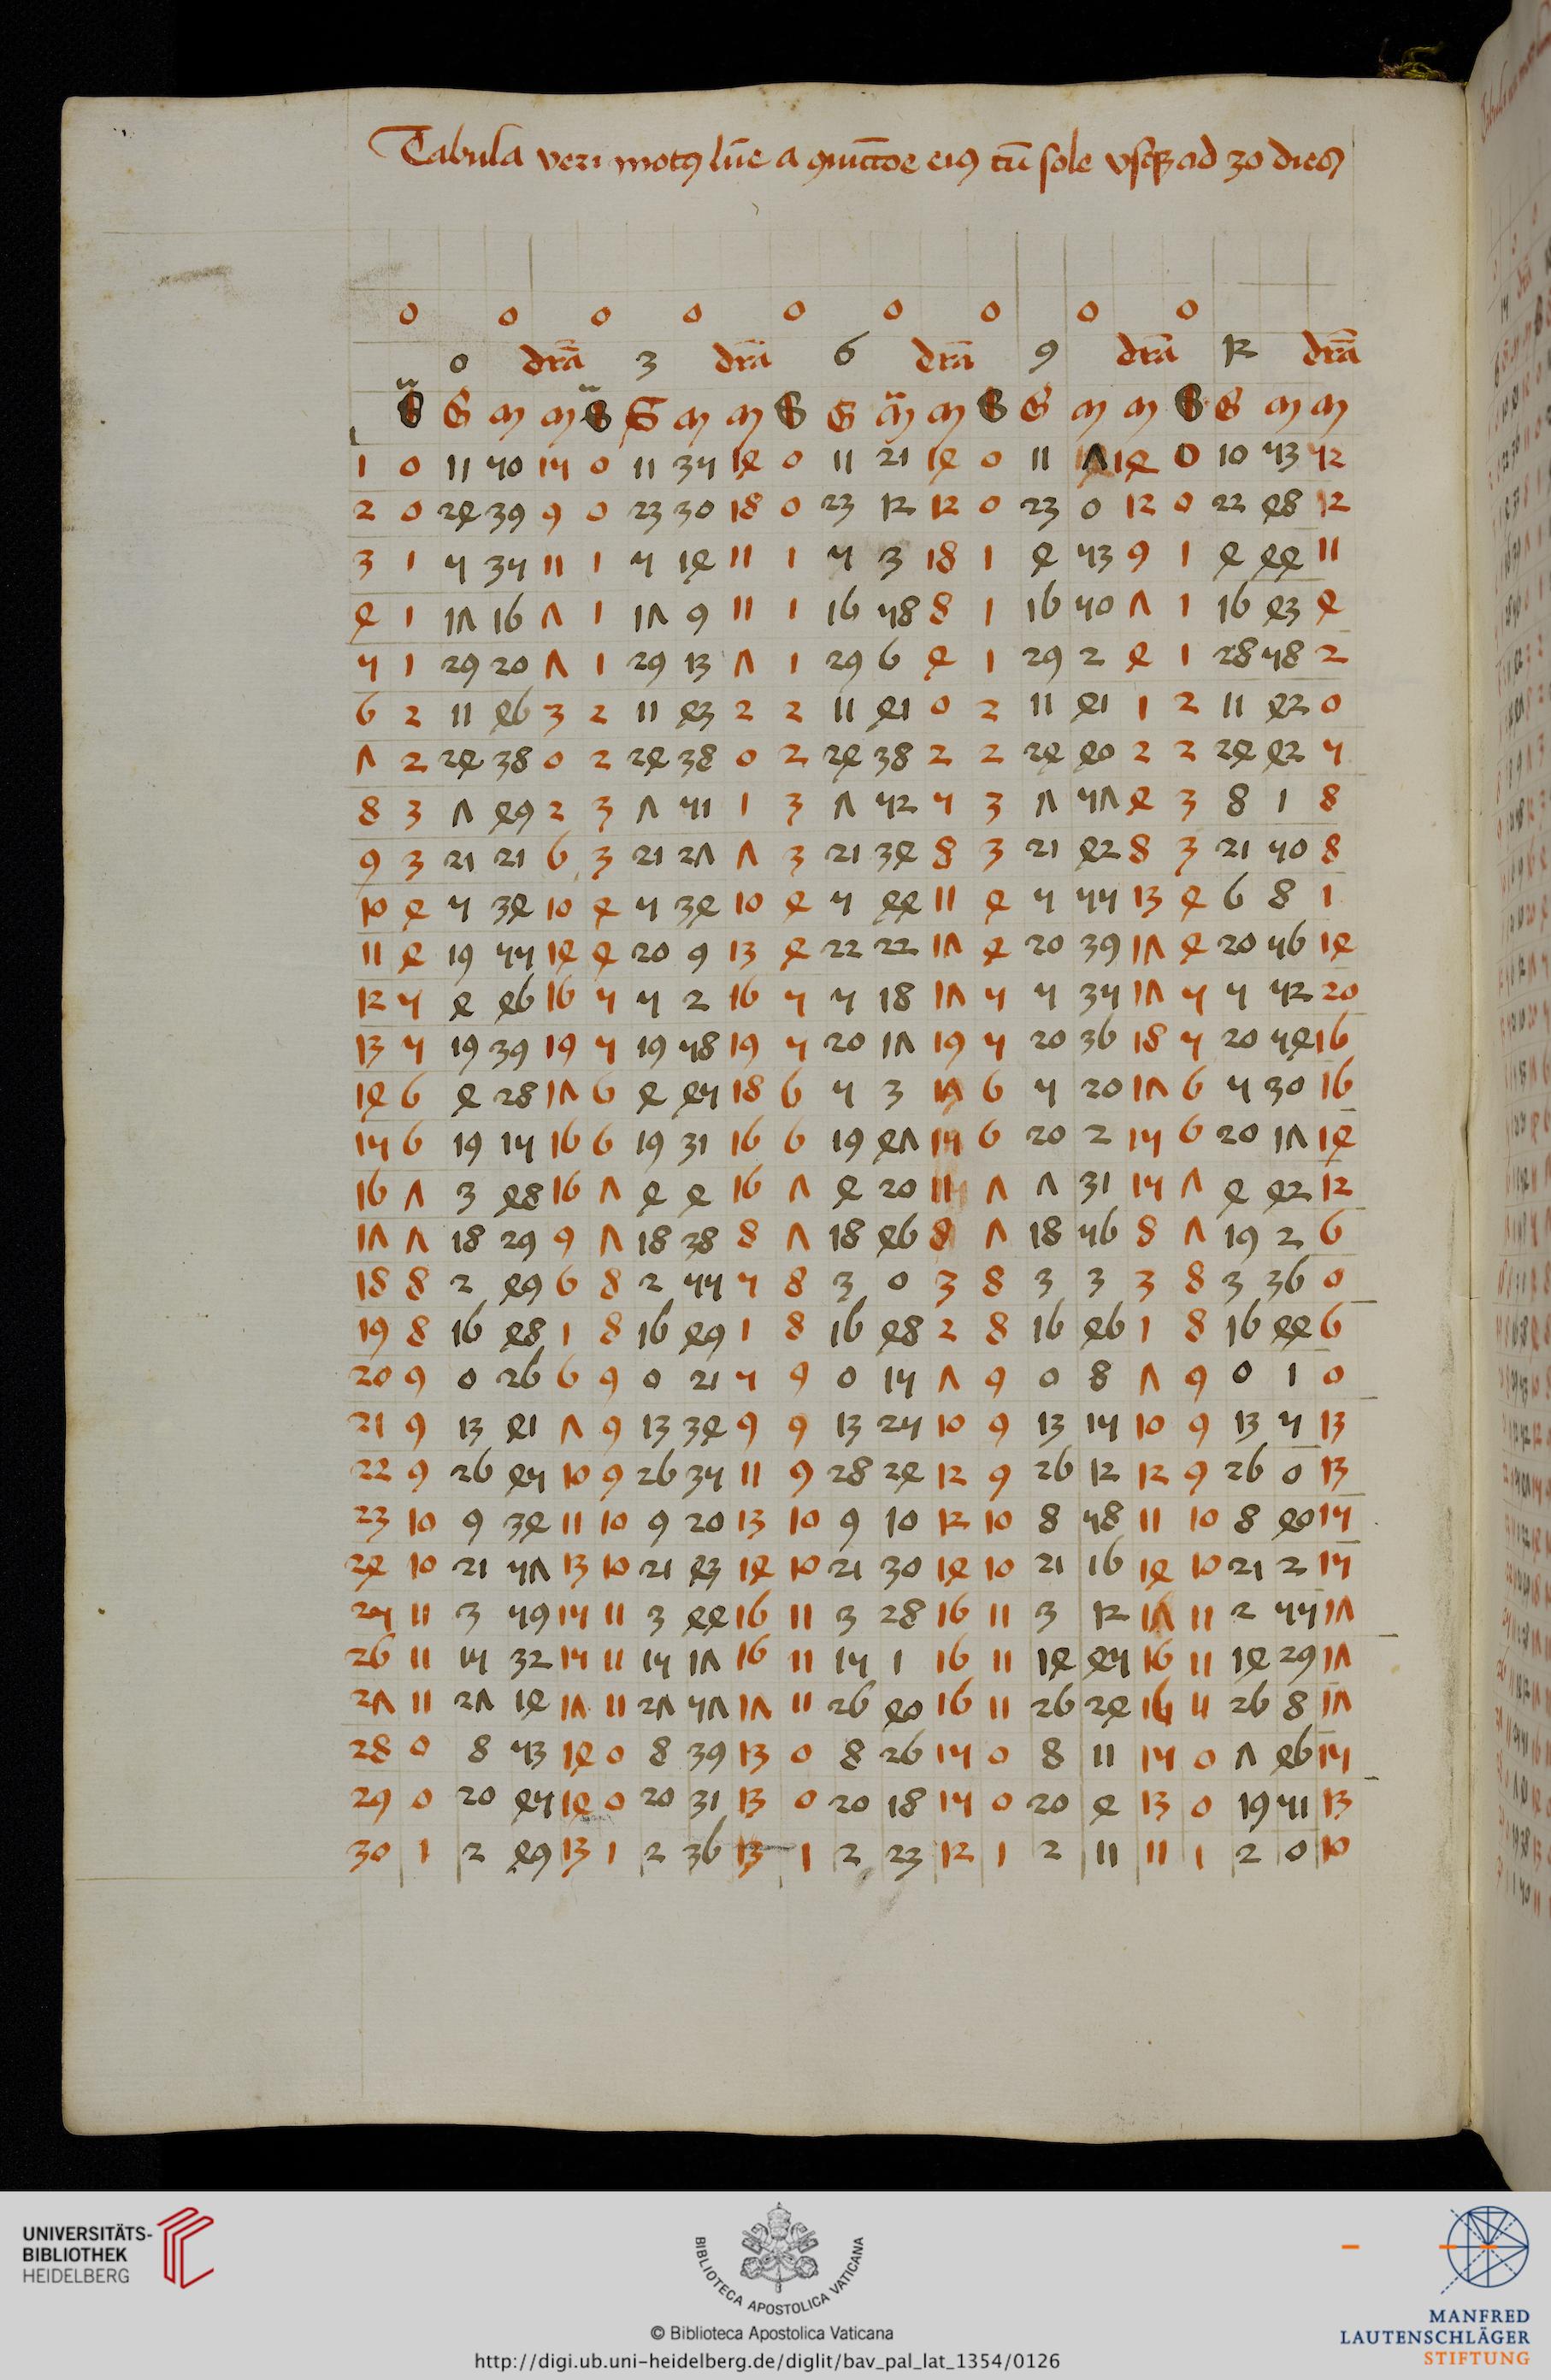 Tabula veri motꝰ lūe a ꝯiūctōe eiꝰ cū sole vsqꝫ ad 30 dies
0 0 0 0 0 0 0 0 0
0 drā 3 drā 6 drā 9 drā 12 drā
S G m m S G m m S G m m S G m m S G m m
1 0 11 50 15 0 11 35 14 0 11 21 14 0 11 7 14 0 10 53 52
2 0 24 39 9 0 23 30 18 0 23 12 12 0 23 0 12 0 22 48 12
3 1 5 35 11 1 5 14 11 1 5 3 18 1 4 53 9 1 4 44 11
4 1 17 16 7 1 17 9 11 1 16 58 8 1 16 50 7 1 16 43 4
5 1 29 20 7 1 29 13 7 1 29 6 4 1 29 2 4 1 28 58 2
6 2 11 46 3 2 11 43 2 2 11 41 0 2 11 41 1 2 11 42 0
7 2 24 38 0 2 24 38 0 2 24 38 2 2 24 40 2 2 24 42 5
8 3 7 49 2 3 7 51 1 3 7 52 5 3 7 57 4 3 8 1 8
9 3 21 21 6 3 21 27 7 3 21 34 8 3 21 42 8 3 21 50 8
10 4 5 34 10 4 5 34 10 4 5 44 11 4 5 55 13 4 6 8 1
11 4 19 55 14 4 20 9 13 4 22 22 17 4 20 39 17 4 20 56 14
12 5 4 46 16 5 5 2 16 5 5 18 17 5 5 35 17 5 5 52 20
13 5 19 39 19 5 19 58 19 5 20 17 19 5 20 36 18 5 20 54 16
14 6 4 28 17 6 4 45 18 6 5 3 17 6 5 20 17 6 5 30 16
15 6 19 15 16 6 19 31 16 6 19 47 15 6 20 2 15 6 20 17 14
16 7 3 48 16 7 4 4 16 7 4 20 11 7 7 31 15 7 4 42 12
17 7 18 29 9 7 18 38 8 7 18 46 8 7 18 56 8 7 19 2 6
18 8 2 49 6 8 2 55 5 8 3 0 3 8 3 3 3 8 3 36 0
19 8 16 48 1 8 16 49 1 8 16 48 2 8 16 46 1 8 16 44 6
20 9 0 26 6 9 0 21 5 9 0 15 7 9 0 8 7 9 0 1 0
21 9 13 41 7 9 13 34 9 9 13 25 10 9 13 15 10 9 13 5 13
22 9 26 45 10 9 26 35 11 9 28 24 12 9 26 12 12 9 26 0 13
23 10 9 34 11 10 9 20 13 10 9 10 12 10 8 58 11 10 8 40 15
24 10 21 57 13 10 21 43 14 10 21 30 14 10 21 16 14 10 21 2 15
25 11 3 59 15 11 3 44 16 11 3 28 16 11 3 12 17 11 2 55 17
26 11 15 32 15 11 15 17 16 11 15 1 16 11 14 45 16 11 14 29 17
27 11 27 14 17 11 27 57 17 11 26 40 16 11 26 24 16 11 26 8 17
28 0 8 53 14 0 8 39 13 0 8 26 15 0 8 11 15 0 7 46 15
29 0 20 45 14 0 20 31 13 0 20 18 15 0 20 4 13 0 19 51 13
30 1 2 49 13 1 2 36 13 1 2 23 12 1 2 11 11 1 2 0 10
UNIVERSITÄTS-
BIBLIOTHEK
HEIDELBERG
BIBLIOTECA APOSTOLICA VATICANA
© Biblioteca Apostolica Vaticana
http://digi.ub.uni-heidelberg.de/diglit/bav_pal_lat_1354/0126
MANFRED
LAUTENSCHLÄGER
STIFTUNG